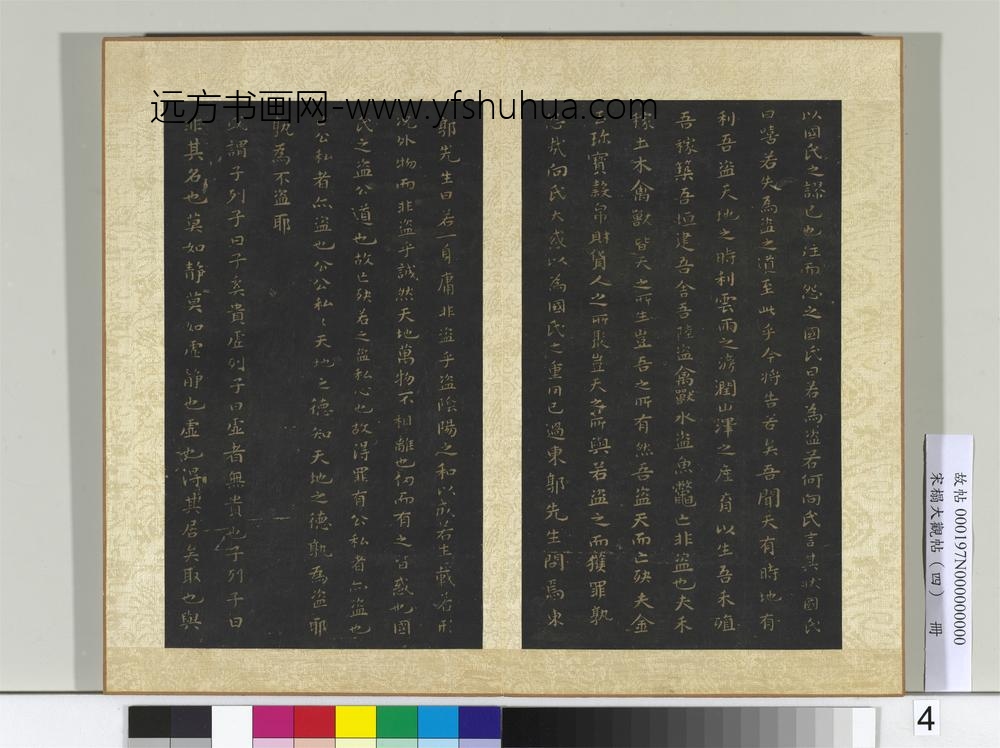 远方书画网-www.yfshuhua.com
以國氏之謬己也往而怨之國氏曰若為盜若何向氏言其狀國氏
曰嘻若失為盜之道至此乎今將告若矣吾聞天有時地有
利吾盜天地之時利雲雨之滂潤山澤之產育以生吾禾殖
吾稼築吾垣建吾舍吾陸盜禽獸水盜魚鼈亡非盜也夫禾
稼土木禽獸皆天之所生豈吾之所有然吾盜天而亡殃夫金
珍寶穀帛財貨人之所聚豈天之所與若盜之而獲罪孰
怨哉向氏大惑以為國氏之重罔己過東郭先生問焉東
郭先生曰若一身庸非盜乎盜陰陽之和以成若生載若形
況外物而非盜乎誠然天地萬物不相離也仞而有之皆惑也國
氏之盜公道也故亡殃若之盜私心也故得罪有公私者亦盜也
公私者亦盜也公公私〻天地之德知天地之德孰為盜耶
孰為不盜耶
或謂子列子曰子奚貴虛列子曰虛者無貴也子列子曰
非其名也莫如靜莫如虛靜也虛也得其居矣取也與
故帖 000197N000000000
宋榻大觀帖（四） 冊
4